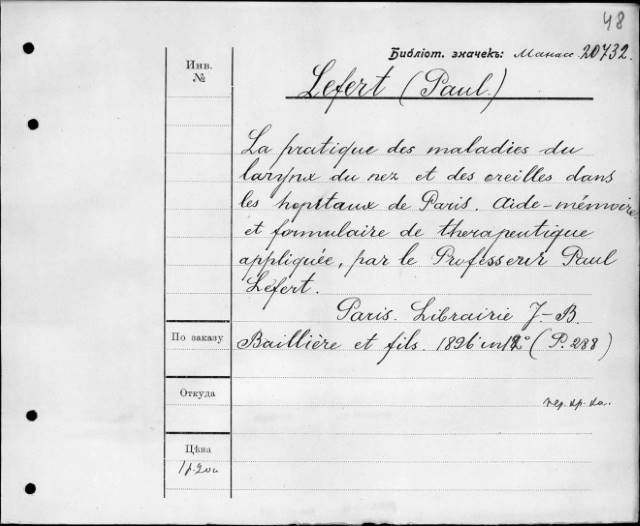 48
Библіот. значекъ: Манас. 20732.
Инв.
№
Lefert (Paul.)
La pratique des maladies du
larynx du nez et des oreilles dans
les hopitaux de Paris. Aide-mémoire
et formulaire de therapeutique
appliquée, par le Professeur Paul
Léfert.
Paris. Librairie J.-B.
По заказу
Baillière et fils. 1896 in 12° (P. 288)
Откуда
пер. кр. ко.
Цѣна
1р.20к